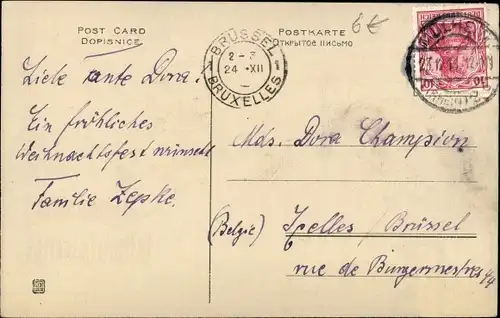 POST CARD
DOPISNICE
POSTKARTE
ОТКРЫТОЕ ПИСЬМО
6€
BRÜSSEL 1
2-
24 XII
BRUXELLES
MÜLHEIM
Liebe Tante Dora!
Ein fröhliches
Weihnachtsfest wünscht
Familie Zepke.
Mds. Dora Champion
(Belgie) Ixelles / Brüssel
rue de Burgermestres 44